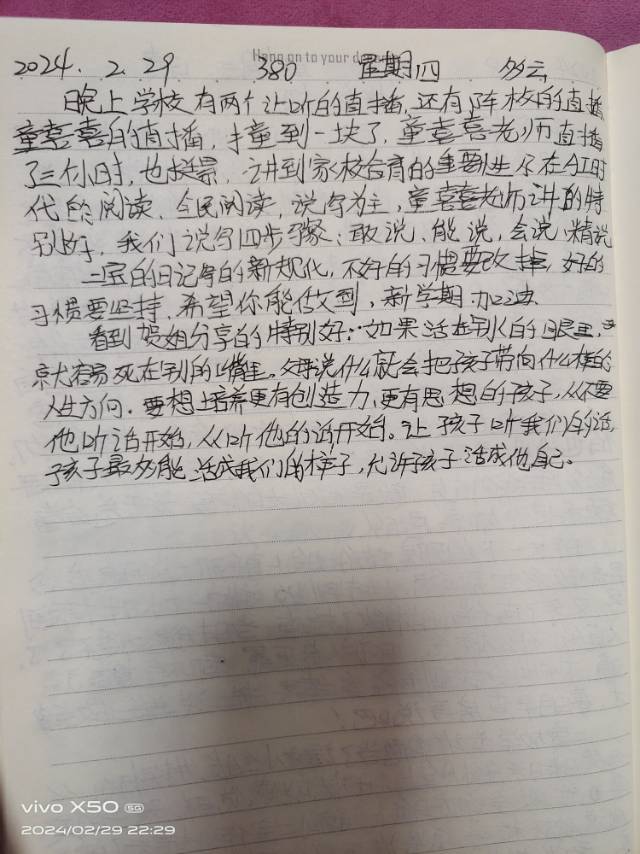 Hang on to your d
2024. 2. 29 380 星期四 多云
晚上学校有两个让听的直播,还有阵校的直播,
童喜喜的直播,撞到一块了,童喜喜老师直播
了三个小时,也挺累,讲到家校合育的重要性,在AI时
代的阅读,全民阅读,说写为主,童喜喜老师讲的特
别好,我们说写四步骤:敢说、能说,会说,精说
二宝的日记写的新规化,不好的习惯要改掉,好的
习惯要坚持,希望你能做到,新学期加油
看到姐分享的特别好:如果活在别人的眼里,
就容易死在别的嘴里。父母说什么就会把孩子带向什么样的
人生方向。要想培养更有创造力、更有思想的孩子,从不要
他听话开始,从听他的话开始。让孩子听我们的话,
孩子最多能活成我们的样子,允许孩子活成他自己。
vivo X50 5G
2024/02/29 22:29